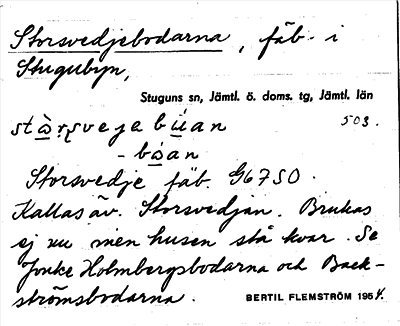 Storsvedjebodarna, fäb. i
Stugubyn,
Stuguns sn, Jämtl. ö. doms. tg, Jämtl. län
503.
stòrṣvejebùan
- bòan
Storsvedje fäb. G67SO.
Kallas äv. Storsvedjan. Brukas
ej nu men husen stå kvar. Se
Jonke Holmbergsbodarna och Back-
strömsbodarna.
BERTIL FLEMSTRÖM 1954.